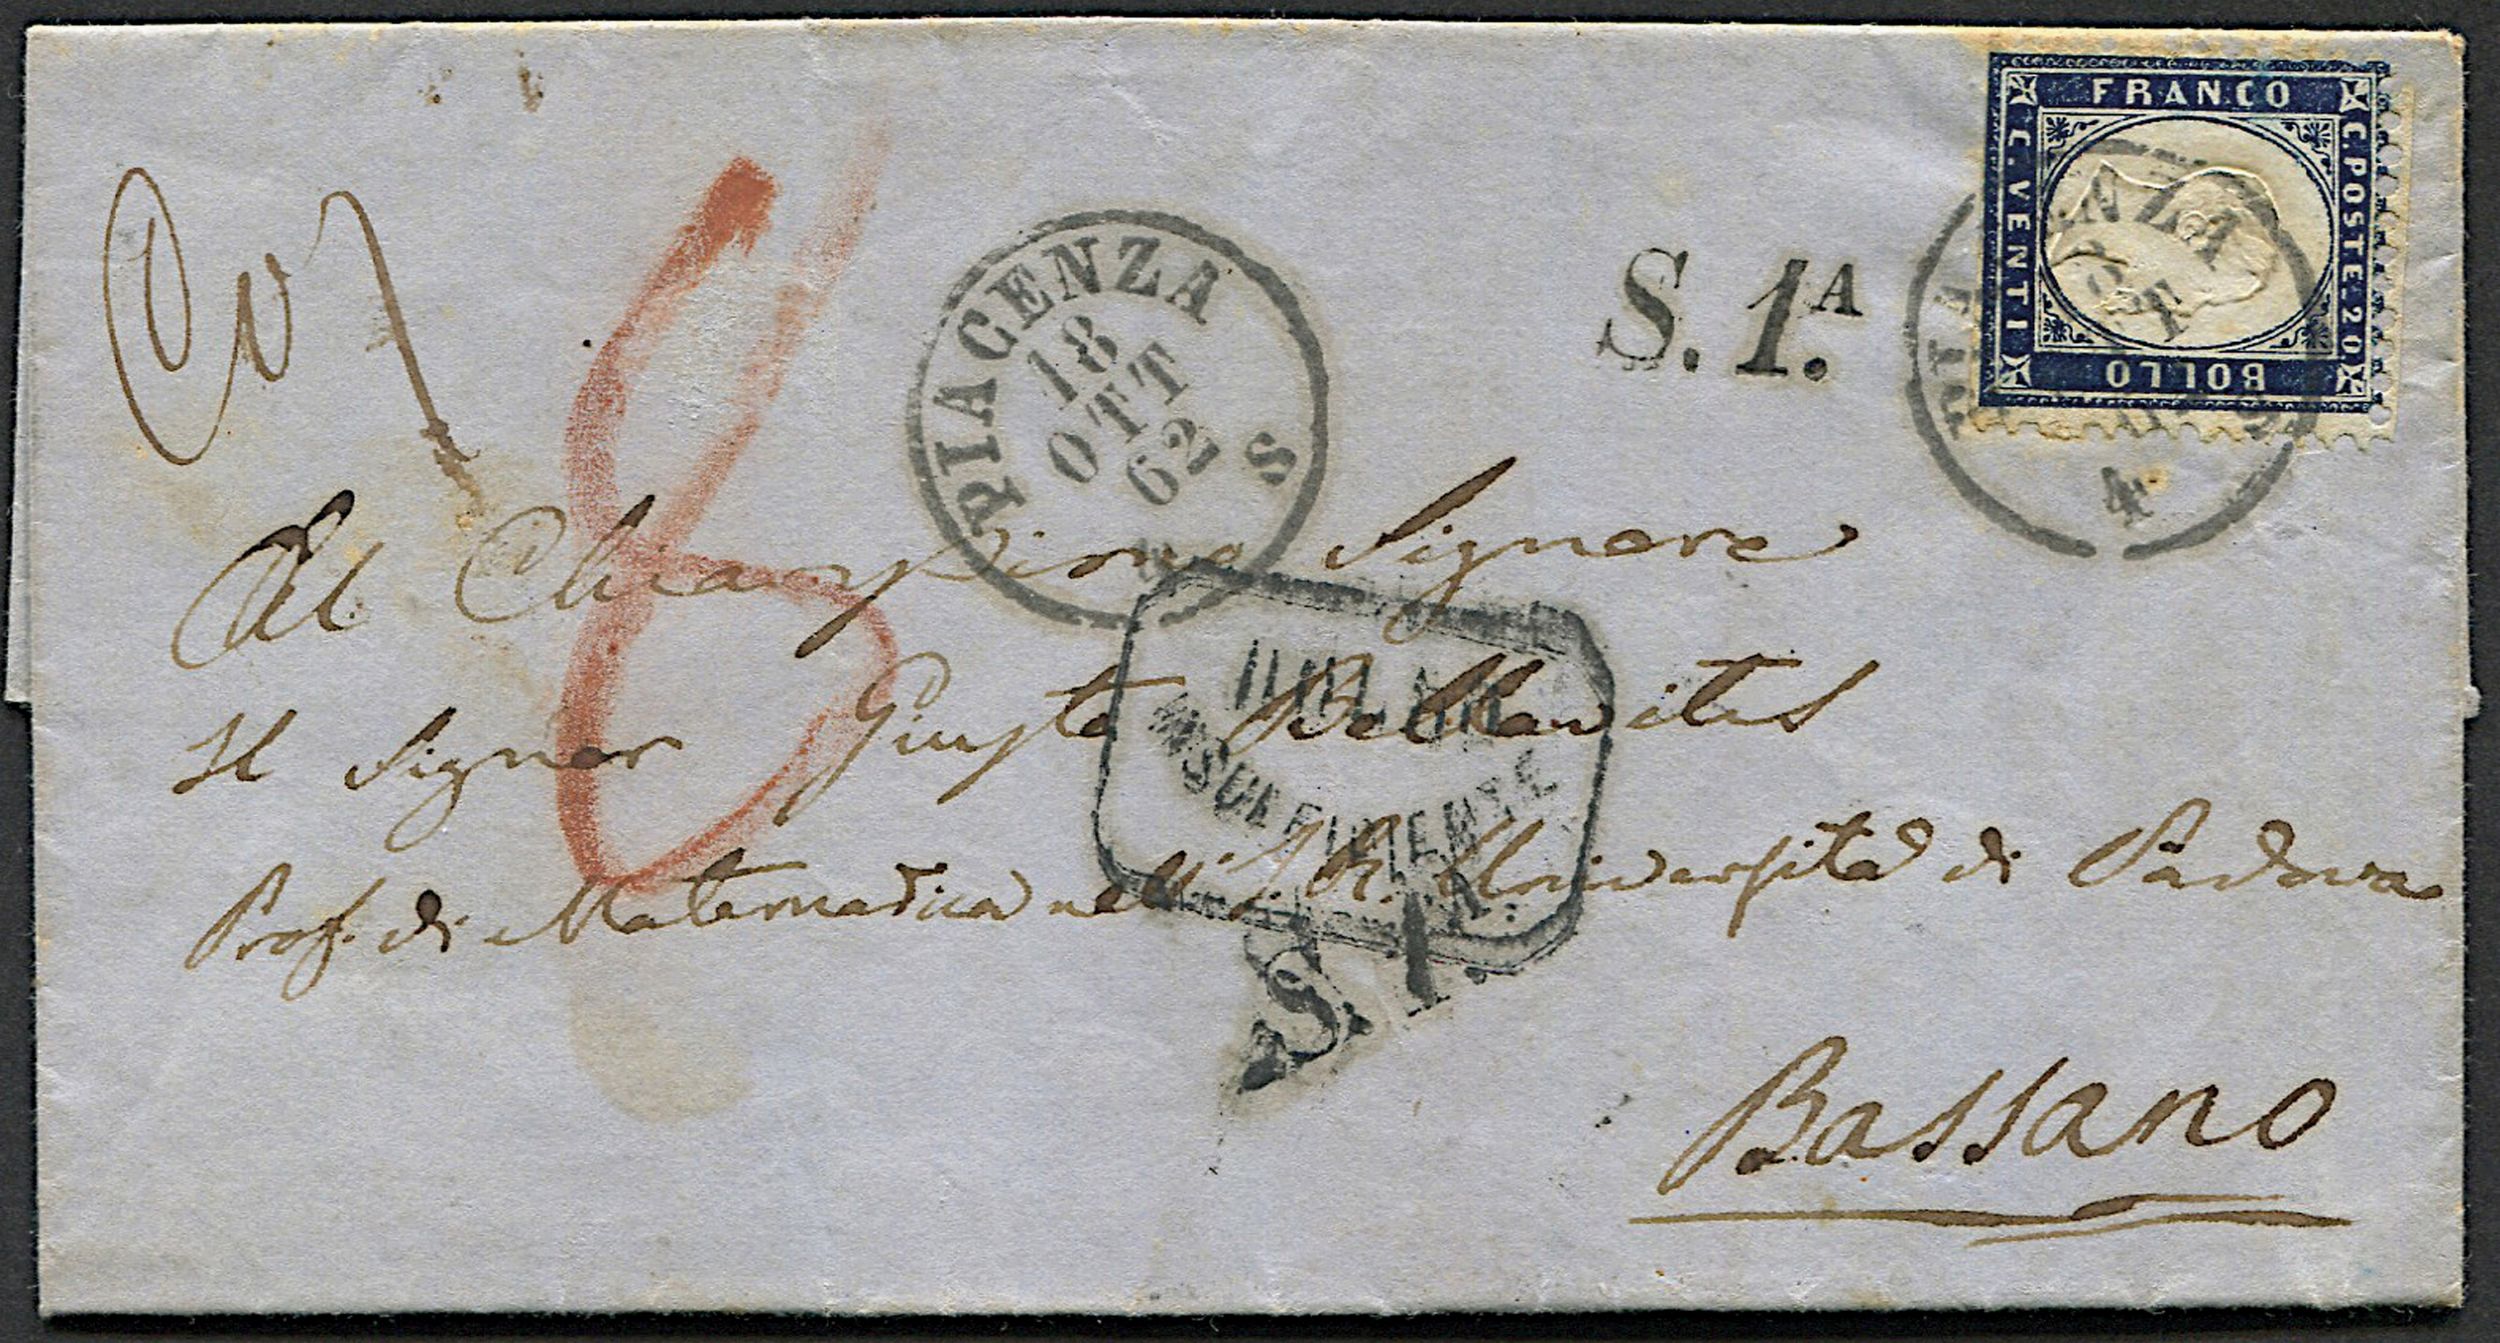 FRANCO
C. POSTE. 20
BOLLO
C. VENTI
PIACENZA
18
OTT
62
S
S. 1.A
PIA ENZA
4
Al Chiarissimo Signore
Il Signor Giusto Bellavitis
Prof. di Matematica nell' I. R. Università di Padova
INSUFFICIENTE
S. 1.A
Bassano